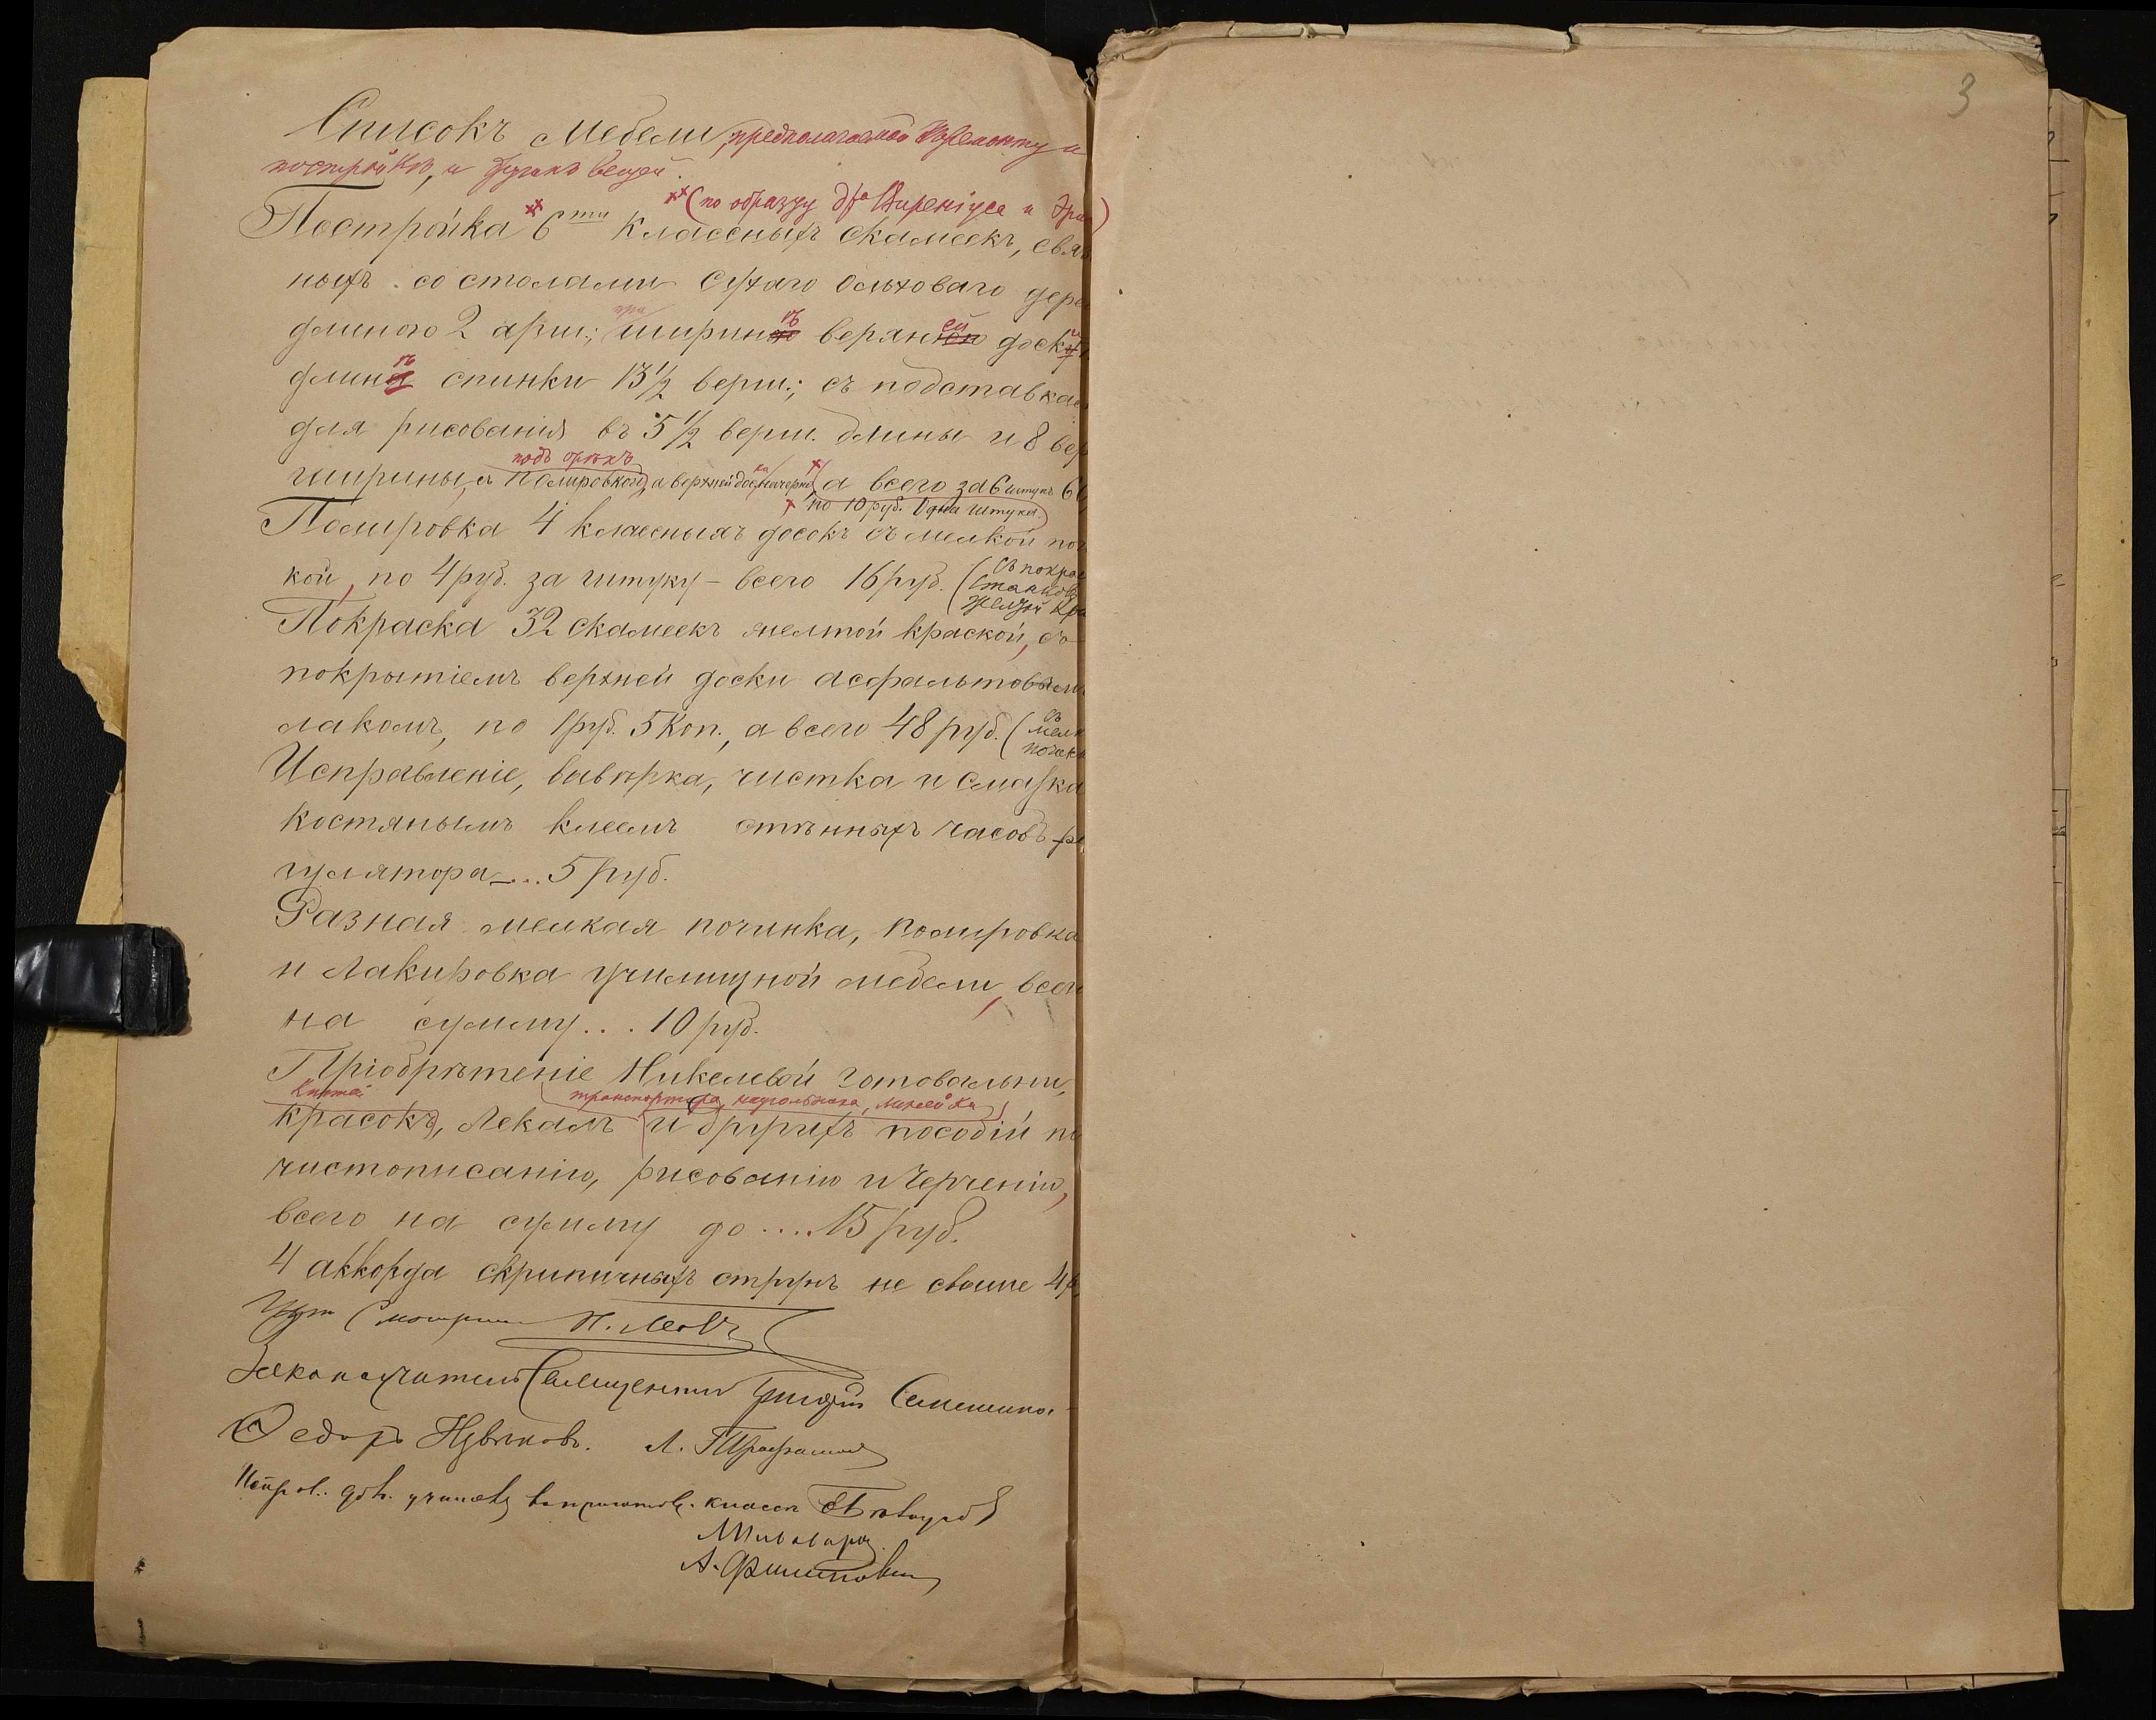 3
Списокъ Мебели, предполагаемой къ ремонту и
постройкѣ, и другихъ вещей.
**(по образцу д-ра Виреніуса и
Постройка ** 6ти классныхъ скамеекъ,
ныхъ со столами сухаго ольховаго
длиною 2 арш.; при ширинѣ верхней доски
длинѣ спинки 13½ верш.; съ подставка
для рисованія въ 5½ верш. длины и 8 вер
подъ орѣхъ
ширины, съ полировкой, а верхней доски начерно, а всего за 6 штукъ
по 10 руб. одна штука)
Полировка 4 классныхъ досокъ съ мелкой
кой, по 4 руб. за штуку - всего 16 руб. (съ
Покраска 32 скамеекъ желтой краской, съ
покрытіемъ верхней доски асфальтовымъ
лакомъ, по 1 руб. 5 коп., а всего 48 руб. (съ
Исправленіе, вывѣрка, чистка и смазка
костянымъ клеемъ стѣнныхъ часовъ ре
гулятора_... 5 руб.
Разная мелкая починка, полировка
и лакировка училищной мебели, всего
на сумму... 10 руб.
Пріобрѣтеніе никелевой готовальни,
кистей транспортира, наугольника, линейки
красокъ, лекалъ и другихъ пособій по
чистописанію, рисованію и черченію,
всего на сумму до.... 15 руб.
4 аккорда скрипичныхъ струнъ не свыше 4 р.
Смотритель
Законоучитель Священникъ Григорій
Федоръ
А.
Исправ. дол. учителя приготов. класса
А. Филиповичъ